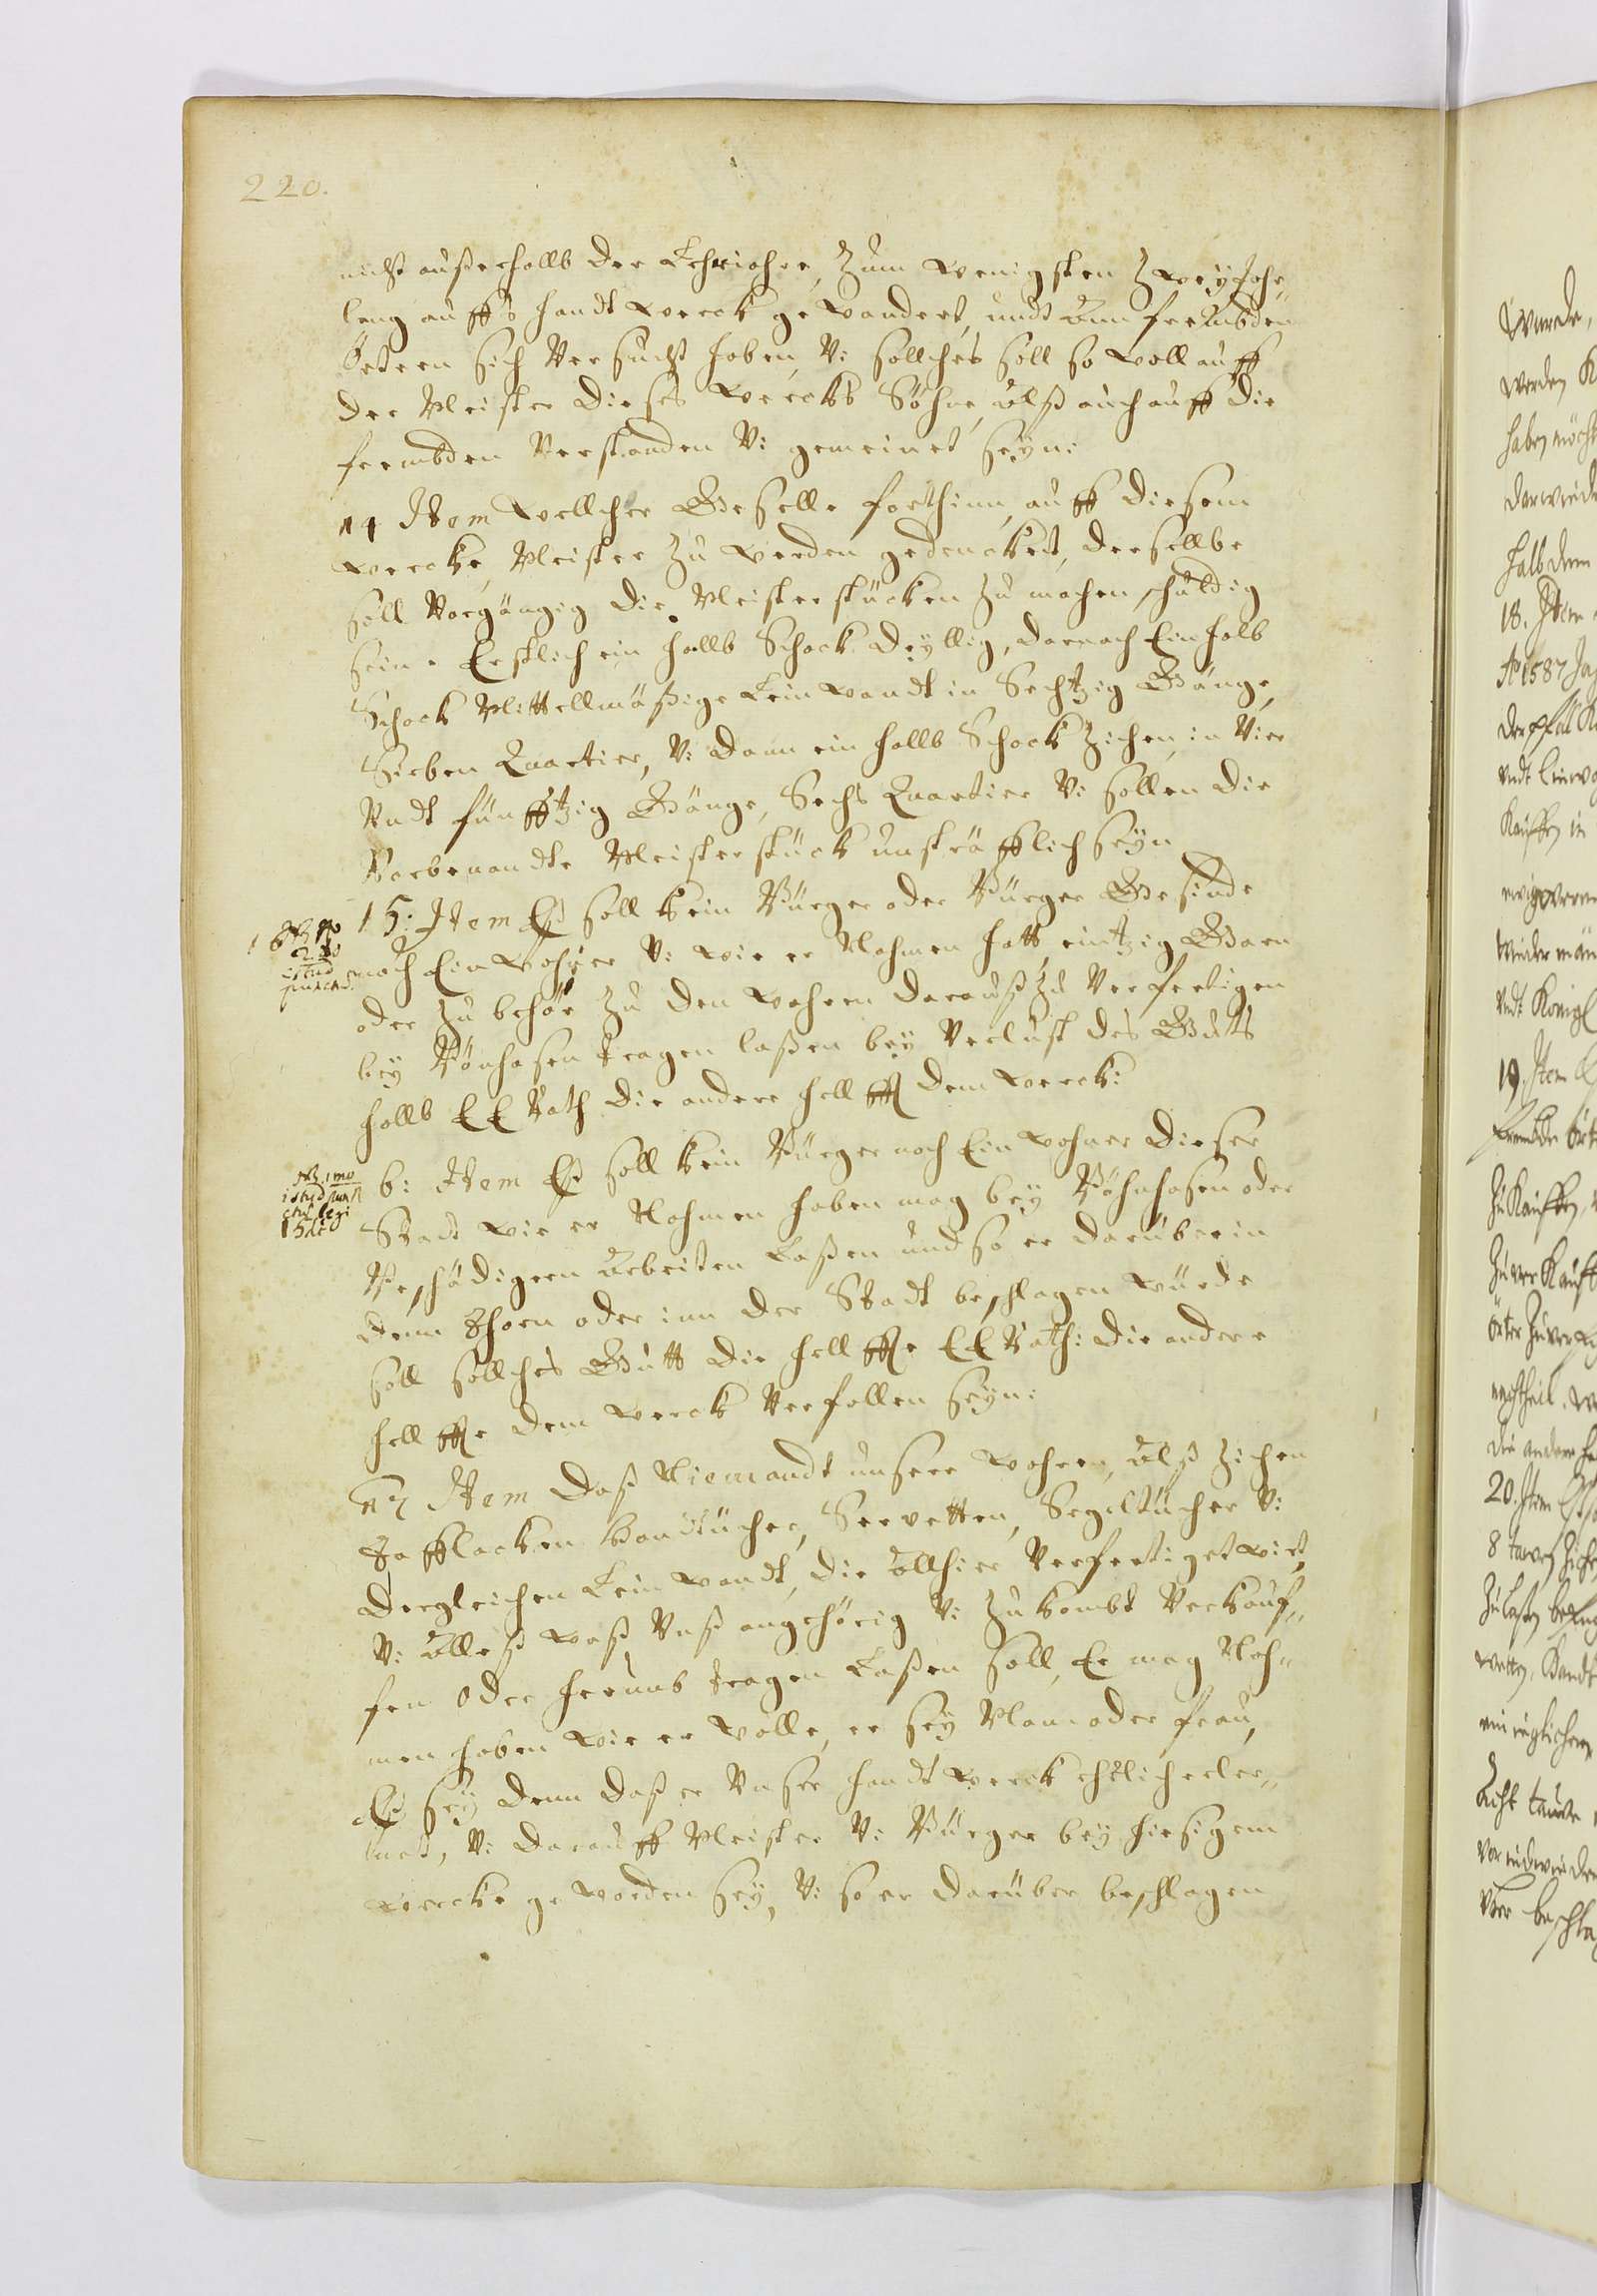 220.
nicht außerhallb der Lehriahre, zum wenigsten zwey Jahr
lang auff's handtwerck gewandert, undt ann frembden
örtern sich versucht haben, V: sollches soll so woll auff
der Meister dieses wercks Söhne, alß auch auff die
frembden verstanden V: gemeinet seyn:
14 Item wellcher Geselle forthinn, auff diesem
wercke, Meister zu werden gedencket, derselbe
soll vorgängig die Meisterstücken zu machen schuldig
sein. Erstlich ein hallb Schock Dryllig, darnach Ein halb
Schock Mittellmäßige Leinwandt in Sechtzig Gänge,
Sieben Quartier, V: dann ein hallb Schock Zichen, in Vier
Vndt fünfftzig Gänge, Sechs Quartier V: sollen die
Vorbenandte Meisterstück unsträfflich seyn
15: Item Eß soll kein Bürger oder Bürger Gesinde
noch Einwohner V: wie er Nahmen hatt, eintzig Garn
oder zu behör zu den wahren darauß zu verfertigen
bey Bönhasen tragen laßen bey Verlust des Gutts
hallb EE Rath die andere hellffte dem werck:
istud punct.
6: Item Eß soll kein Bürger noch Einwohner dieser
Stadt wie er Nahmen haben mag bey Böhnhasen oder
Beschädigern arbeiten Laßen und so er darüber in
denn Thoren oder inn der Stadt beschlagen würde
soll sollches Gutt die hellffte EE Rath: die andere
hellffte dem werck verfallen seyn:
1mo istud punctu legi
17 Item Daß Niemandt unsere wahren, alß Zichen
Tafflacken Handtücher, Servetten, Segeltücher V:
dergleichen Leinwandt, die allhier verfertiget wirt,
V: alleß waß Vnß angehörig V: zu kombt verkauf„
fen oder herumb tragen Laßen soll, Er mag Nah„
men haben wie er wolle, er sey Mann oder frau,
Eß sey denn daß er Vnser handtwerck ehrlich erler„
net, V: darauff Meister V: Bürger bey hiesigem
wercke geworden sey, V: so er darüber beschlagen
wurde,
werden
haben möcht
darwied
halb dem
18. Item
Ao 1587
der
undt Leinwa
Kauffen in
wieder
undt Königl
19. Item
frembde ört
zu Kauffen,
zu verkauff
örter zuver
die andere he
20. Item
8
zu laßen
Acht
beschla